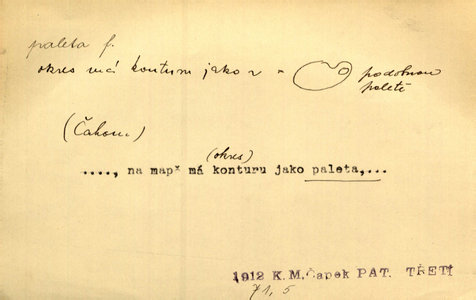 paleta f.
okres má konturu jako
podobnou
paletě
(Čahou)
(okres)
...., na mapě má konturu jako paleta,...
1912 K.M.Čapek PAT. TŘETÍ
71,5